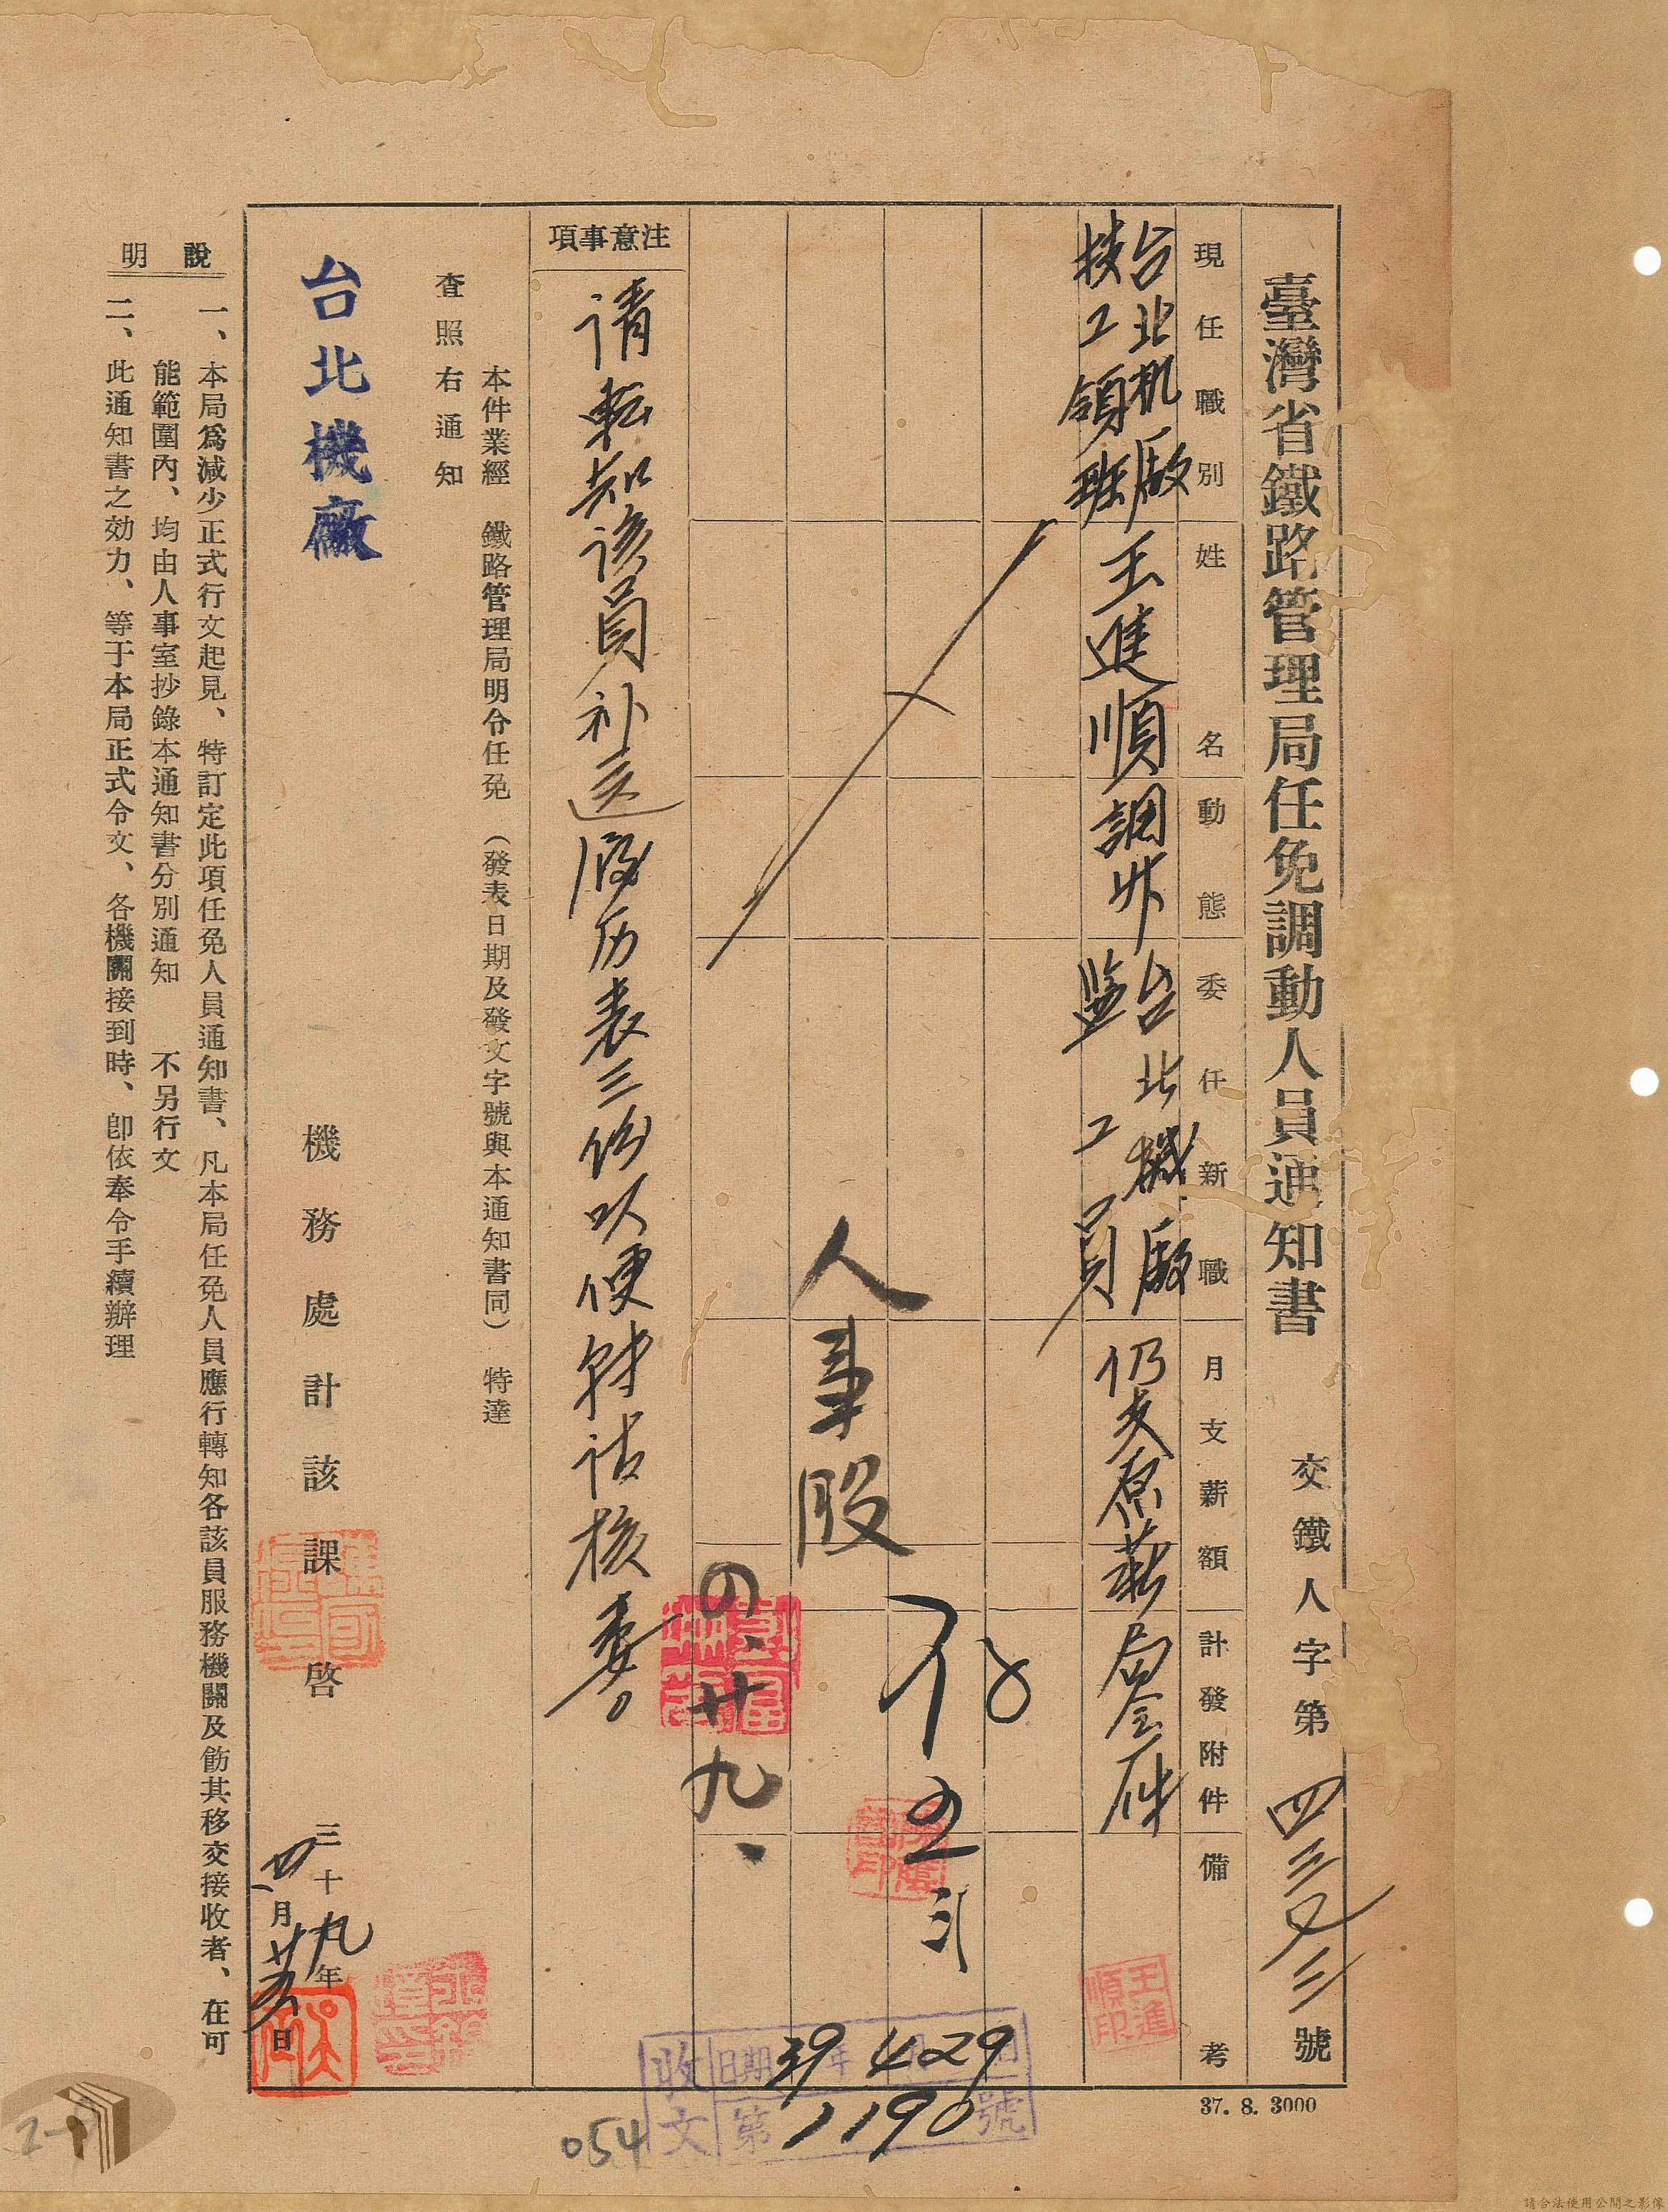 臺灣省鐵路管理局任免調動人員通知書
交鐵人字第四三又三號
現任職別
姓名
動態
委任新職
月支薪額
計發附件
備考
台北机廠
技工領班
王進順
調升
台北機廠
監工員
仍支原薪
王進順印
人事股
四、廿九、
注意事項
请転知該員补送履历表三份以便转请核委。
本件業經 鐵路管理局明令任免 (發表日期及發文字號與本通知書同) 特達
查照右通知
台北機廠
機務處計該課啓
三十九年
四月廿 日
說明
一、本局爲減少正式行文起見、特訂定此項任免人員通知書、凡本局任免人員應行轉知各該員服務機關及飭其移交接收者、在可
能範圍內、均由人事室抄錄本通知書分別通知 不另行文
二、此通知書之効力、等于本局正式令文、各機關接到時、卽依奉令手續辦理
收文 日期 39年4月29日
第1190號
054
37. 8. 3000
請合法使用公開之影像